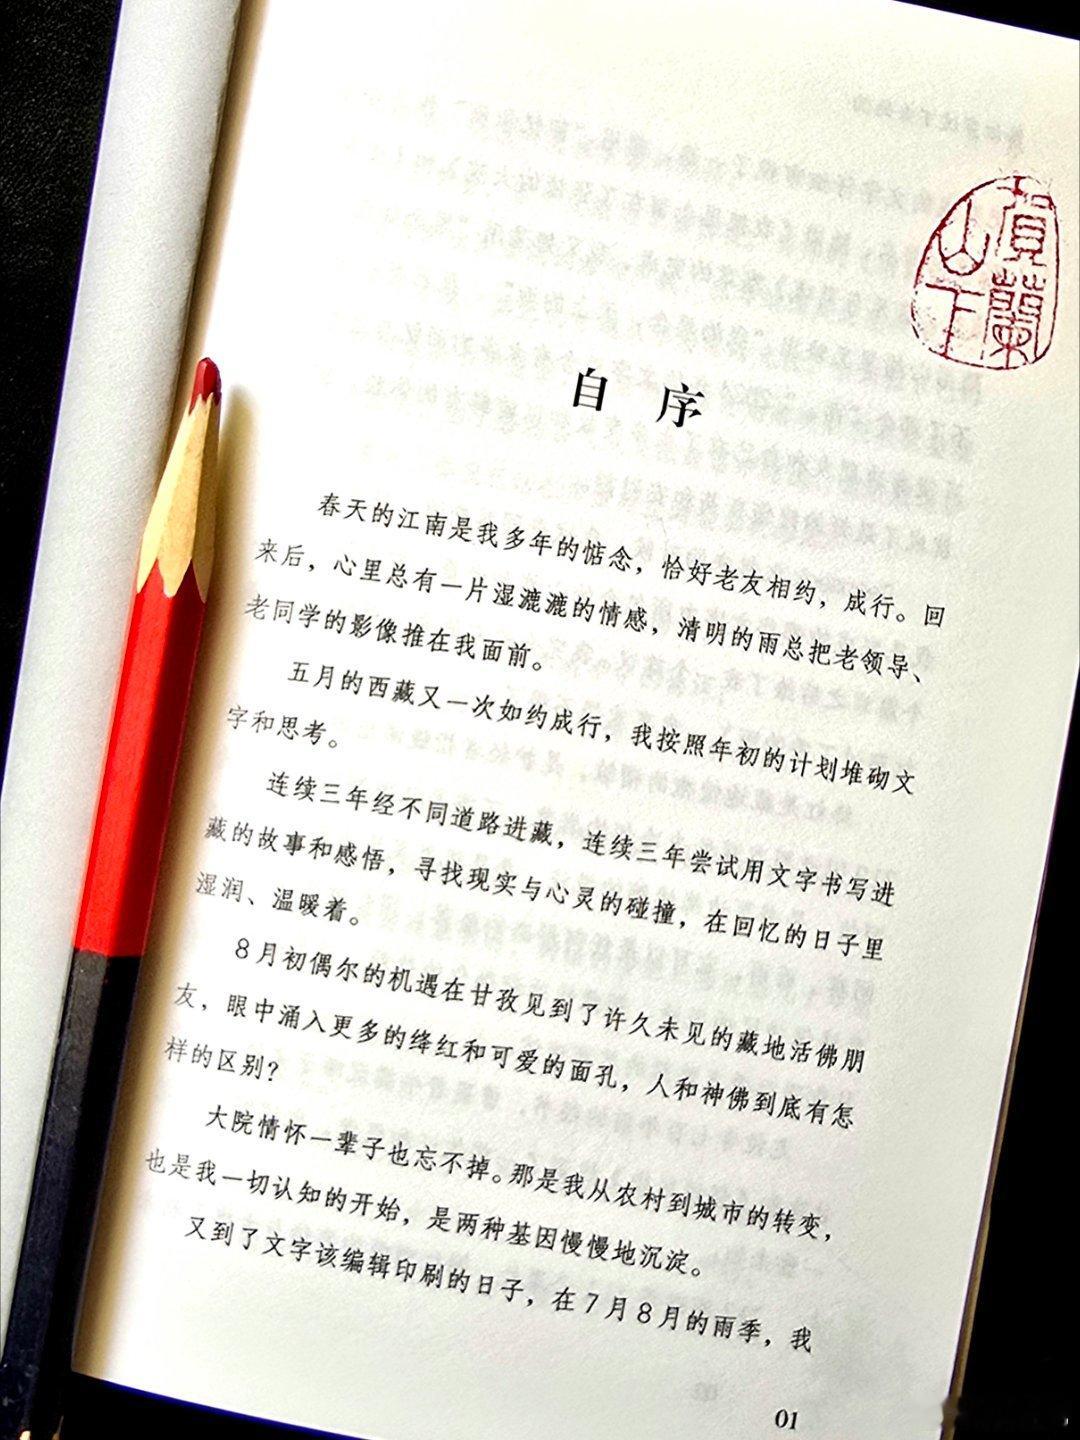 贺兰
山下
自 序
春天的江南是我多年的惦念，恰好老友相约，成行。回
来后，心里总有一片湿漉漉的情感，清明的雨总把老领导、
老同学的影像推在我面前。
五月的西藏又一次如约成行，我按照年初的计划堆砌文
字和思考。
连续三年经不同道路进藏，连续三年尝试用文字书写进
藏的故事和感悟，寻找现实与心灵的碰撞，在回忆的日子里
湿润、温暖着。
8月初偶尔的机遇在甘孜见到了许久未见的藏地活佛朋
友，眼中涌入更多的绛红和可爱的面孔，人和神佛到底有怎
样的区别？
大院情怀一辈子也忘不掉。那是我从农村到城市的转变，
也是我一切认知的开始，是两种基因慢慢地沉淀。
又到了文字该编辑印刷的日子，在7月8月的雨季，我
01